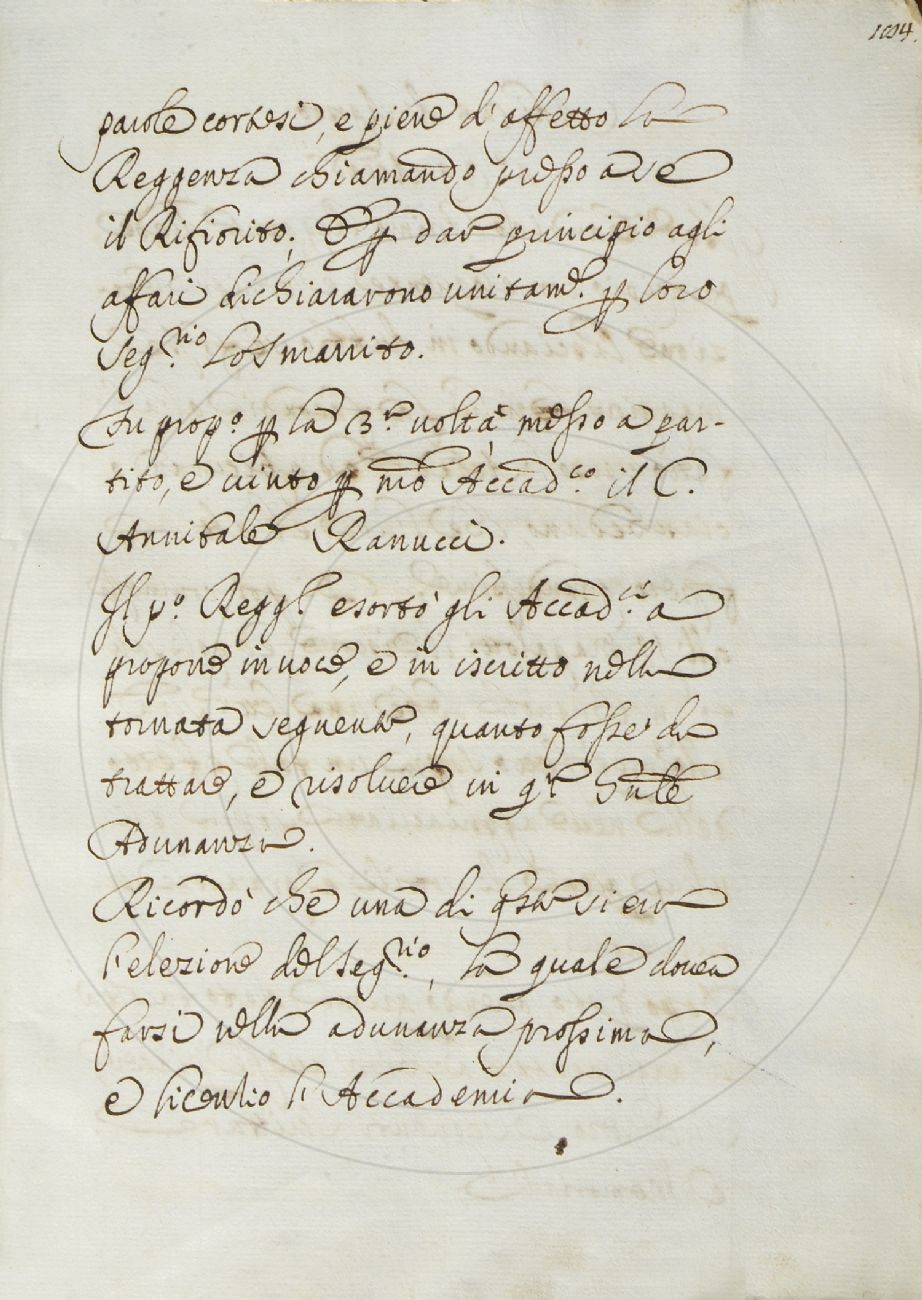 1094.
parole cortesi, e piene d'affetto la
Reggenza chiamando presso a se
il Rifiorito; E p dar principio agli
affari dichiararono unitam.e p loro
Seg.rio lo Smarrito.
Fu prop.o p la 3.a volta messo a par-
tito, e vinto p nro Accad.co il C.
Annibale Ranucci.
Il p.o Regg.te esortò gli Accad.ci a
proporre in voce, e in iscritto nella
tornata seguente, quanto fosse da
trattare, e risolvere in g.l
Adunanza.
Ricordò che una di qste si era
l'elezione del Seg.rio, la quale dovea
farsi nella adunanza prossima,
e licenziò l'Accademia.